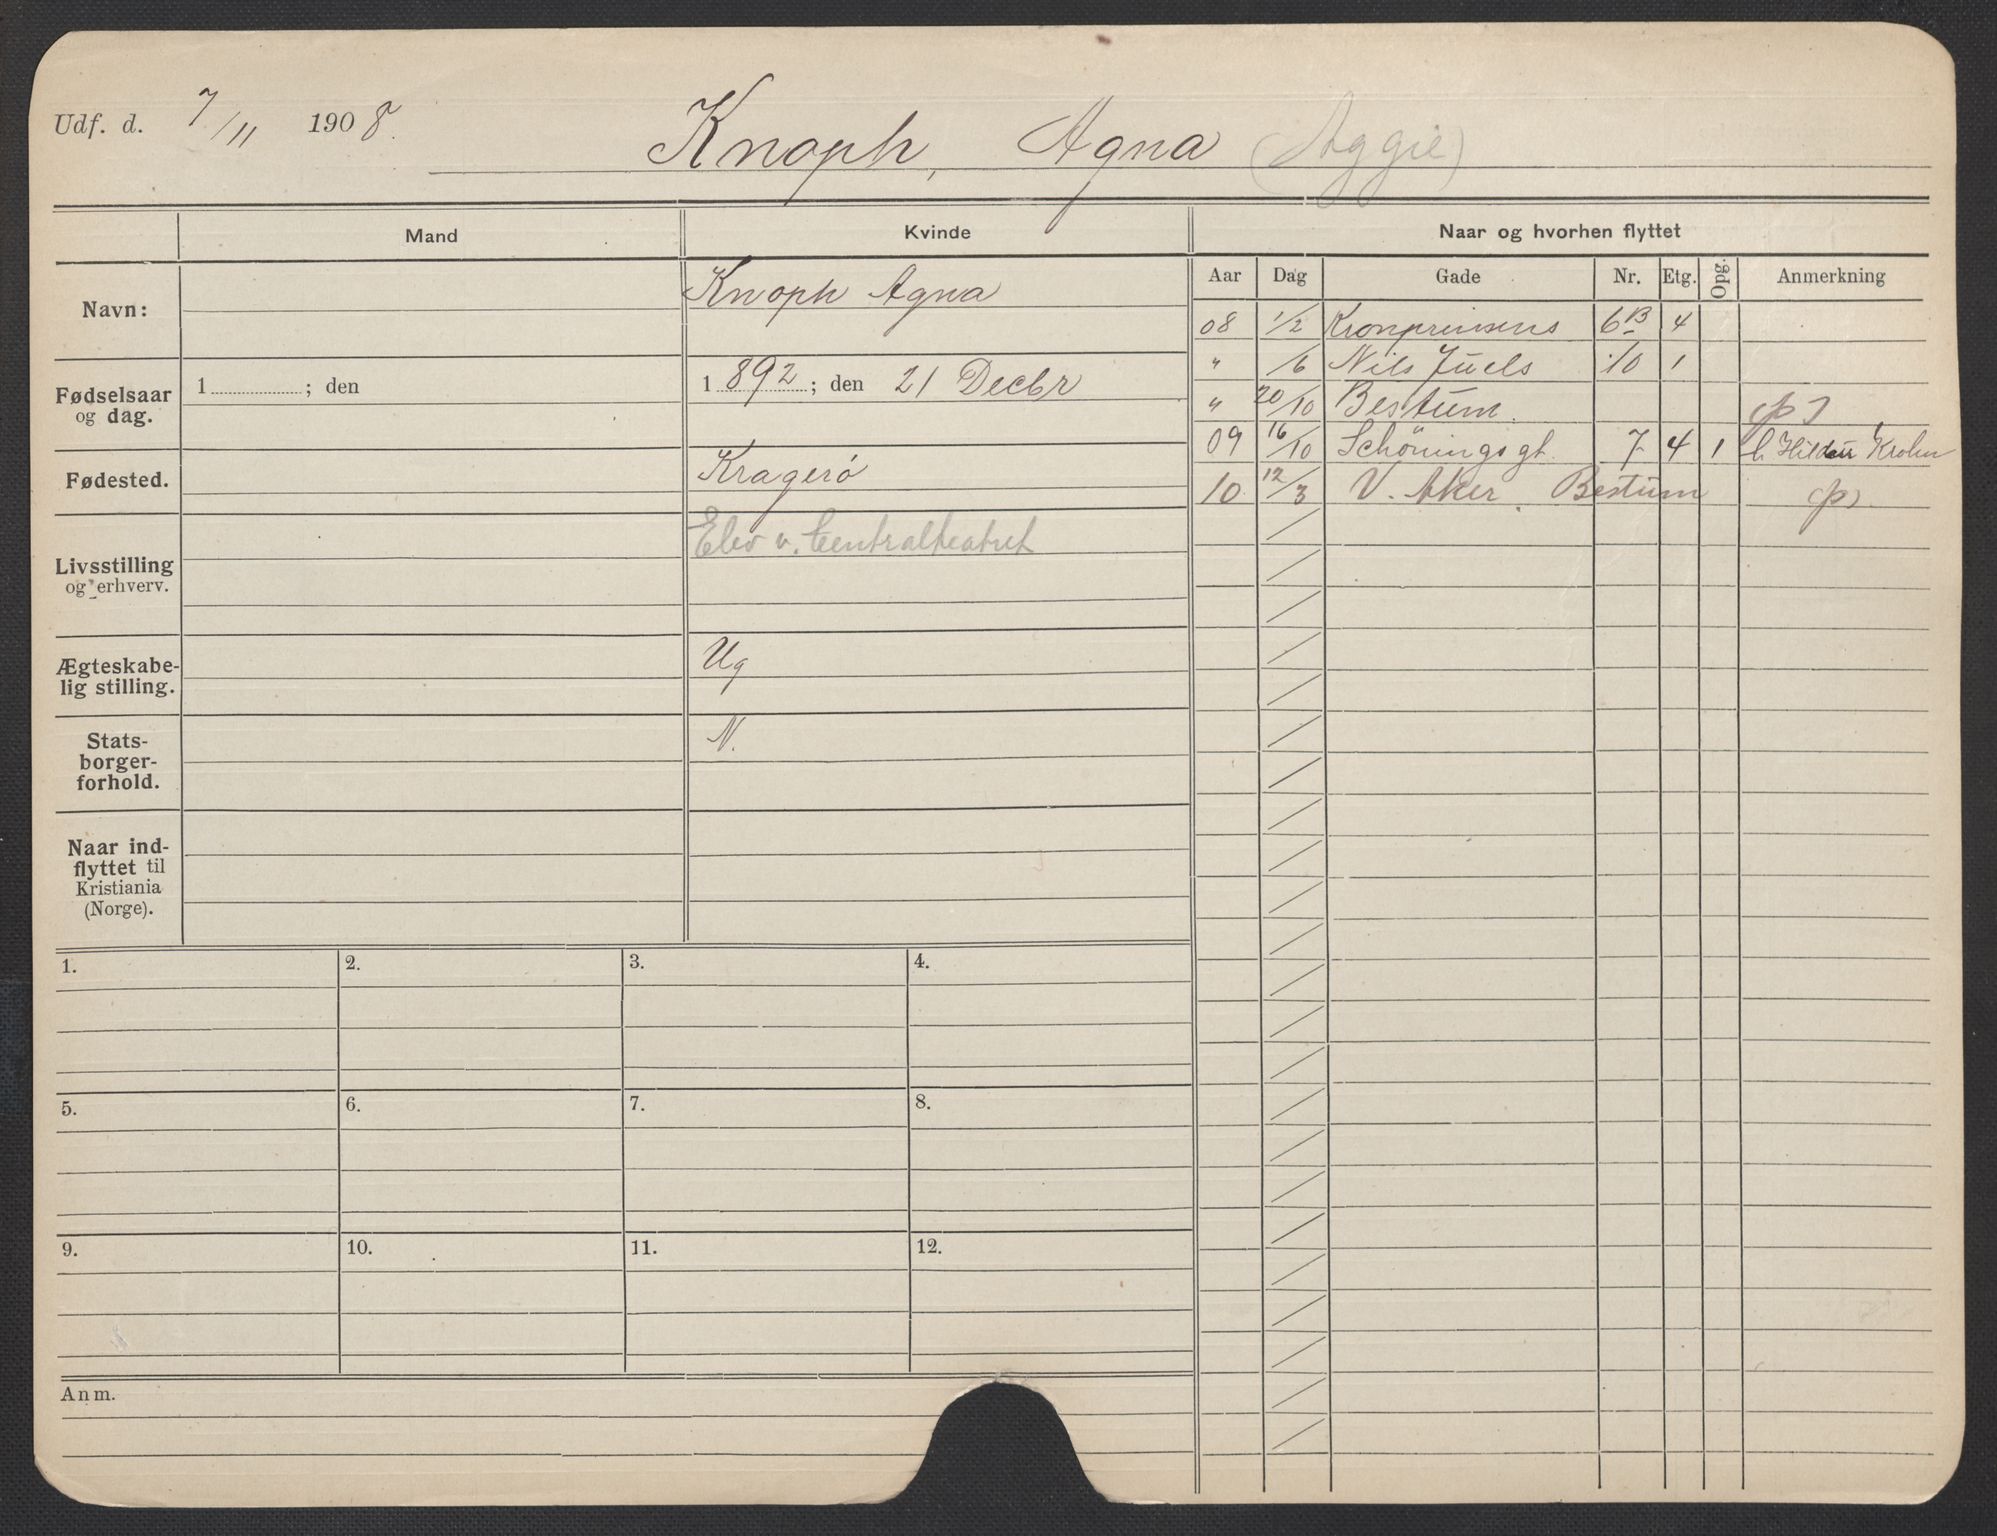 Udf. d. 7/11 1908.
Knoph, Agna (Aggie)
Mand
Kvinde
Naar og hvorhen flyttet
Aar Dag Gade Nr. Etg. Opg. Anmerkning
Navn:
Knoph Agna
Fødselsaar og dag.
1 ; den
1892; den 21 Decbr
Fødested.
Kragerø
Livsstilling og erhverv.
Elev v. Centralteatret
Ægteskabe-
lig stilling.
Ug
Stats-
borger-
forhold.
N.
Naar ind-
flyttet til
Kristiania
(Norge).
08 1/2 Kronprinsens 6B 4
" 1/6 Nils Juels 10 1
" 20/10 Bestum. (p)
09 16/10 Schönings gt. 7 4 1 Krohn
10 12/3 V. Aker. Bestum (p)
1. 2. 3. 4.
5. 6. 7. 8.
9. 10. 11. 12.
Anm.